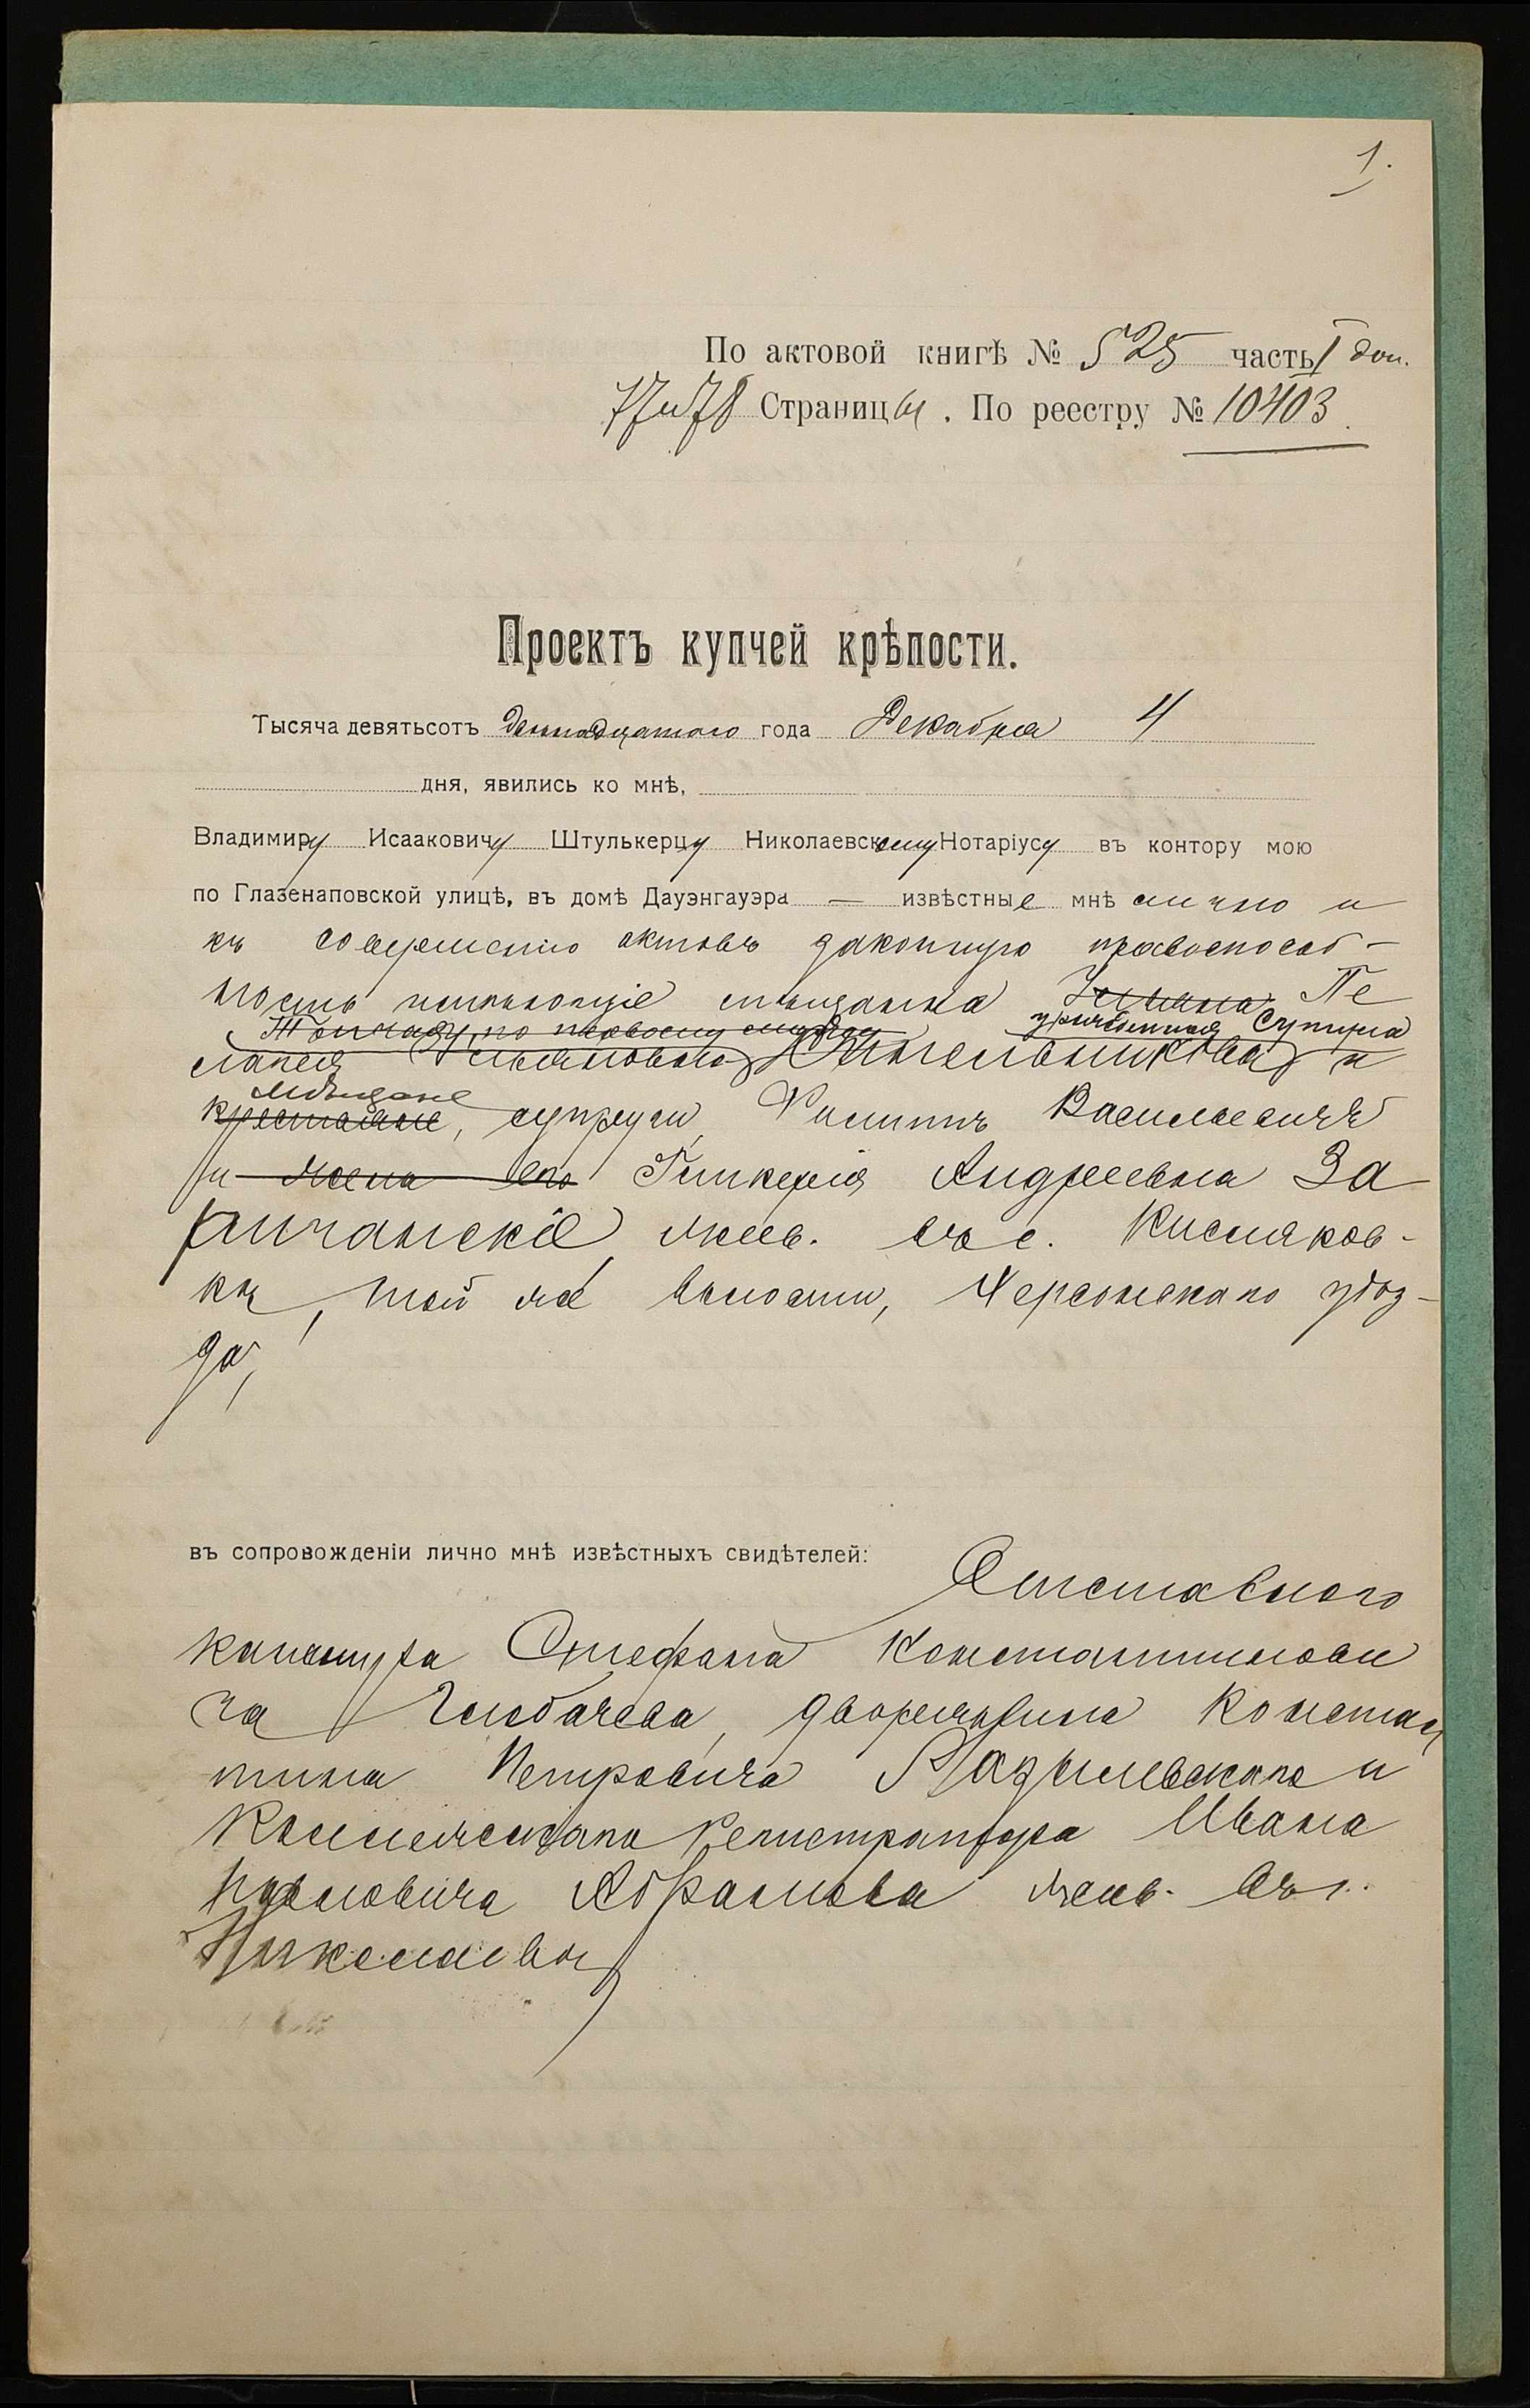 1.
По актовой книгѣ № 525 часть I доп.
77 и 78 Страницы. По реестру № 10403.
Проектъ купчей крѣпости.
Тысяча девятьсотъ двѣнадцатого года Декабря 4
дня, явились ко мнѣ,
Владимиру Исааковичу Штулькерцу Николаевскому Нотаріусу въ контору мою
по Глазенаповской улицѣ, въ домѣ Дауэнгауэра — извѣстные мнѣ лично и
къ совершенію актовъ законную правоспособ-
ность имѣющіе мѣщанка Ульяна Пе
по первому
лагея и
мѣщане
крестьяне, супруги Филиппъ Васильевичъ
и жена его Гликерія Андреевна За
ричанскіе, жив. въ с. Кисляков-
кѣ, той же волости, Херсонскаго уѣз-
да,
въ сопровожденіи лично мнѣ извѣстныхъ свидѣтелей:
Отставного
Стефана Константинови
ча дворянина Констан
тина Петровича и
Коллежскаго Регистратора Ивана
Павловича Абрамова жив. въ г.
Николаевѣ